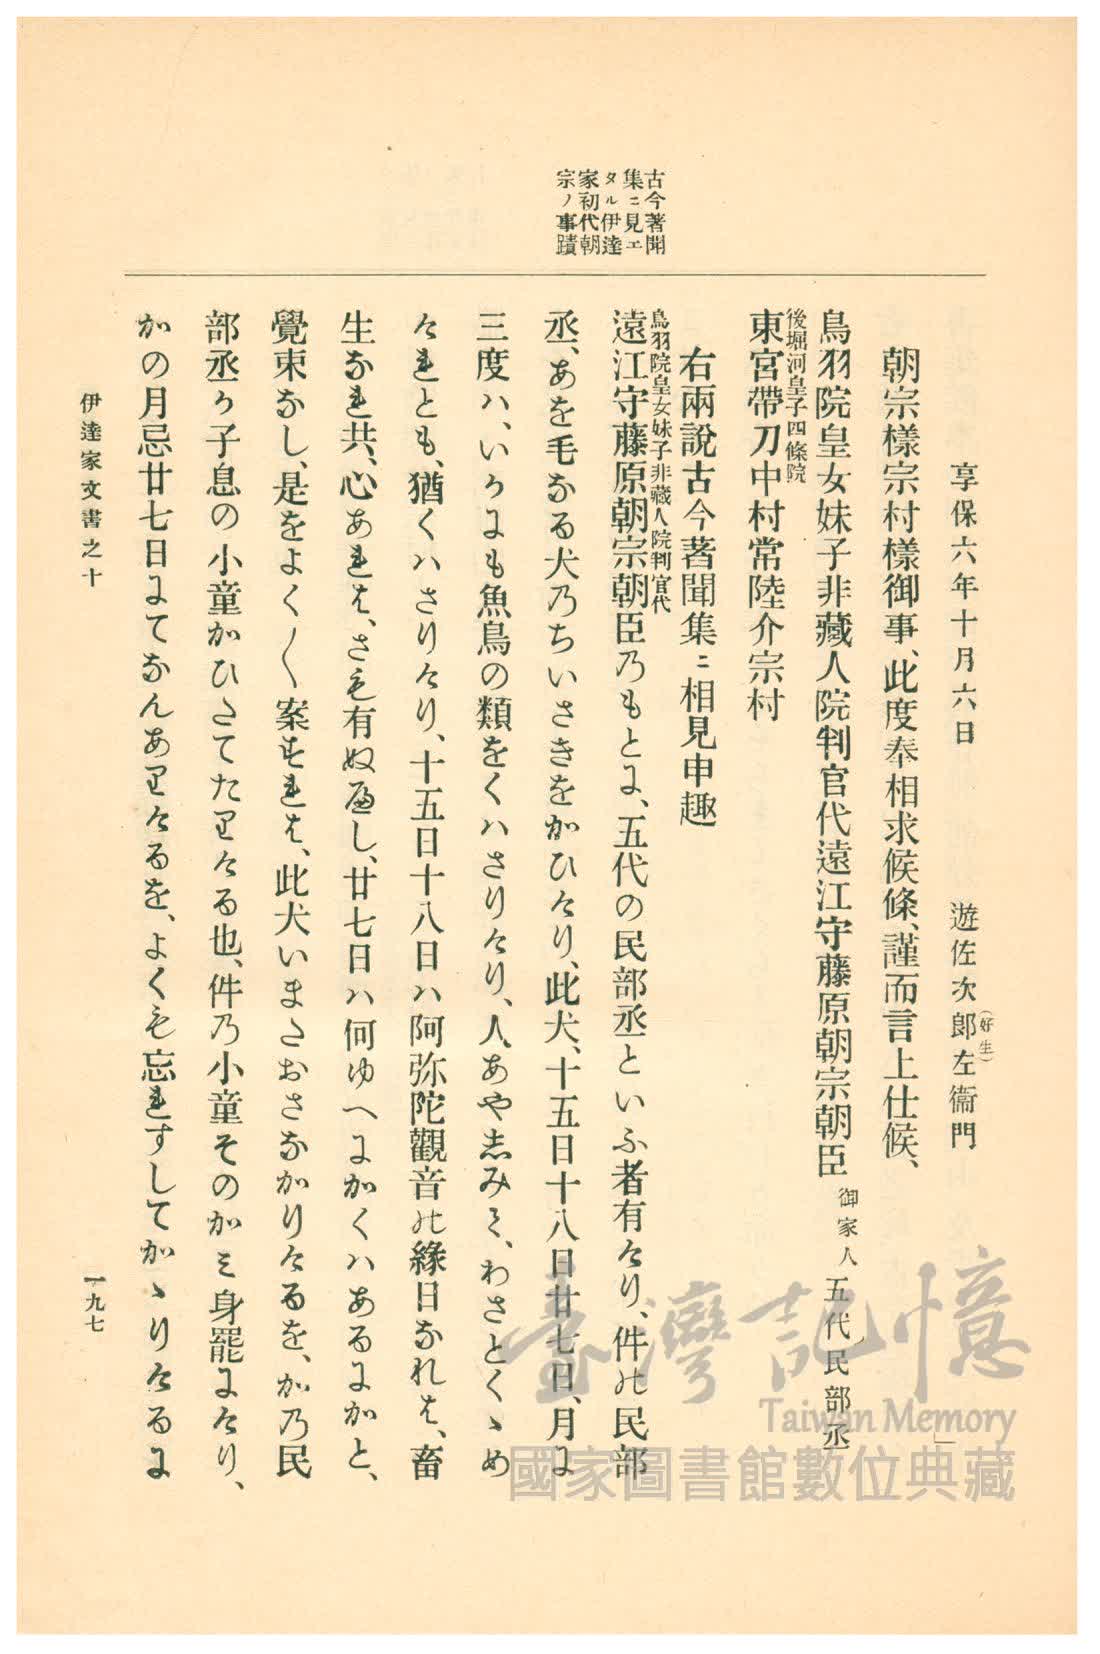 古今著聞
集ニ見エ
タル伊達
家初代朝
宗ノ事蹟
享保六年十月六日　遊佐次郎左衞門(好生)」
朝宗樣宗村樣御事、此度奉相求候條、謹而言上仕候、
鳥羽院皇女妹子非藏人院判官代遠江守藤原朝宗朝臣　御家人五代民部丞
後堀河皇子四條院
東宮帶刀中村常陸介宗村
右兩說古今著聞集ニ相見申趣
鳥羽院皇女妹子非藏人院判官代
遠江守藤原朝宗朝臣乃もとに、五代の民部丞といふ者有けり、件の民部
丞、あを毛なる犬乃ちいさきをかひけり、此犬、十五日十八日廿七日、月に
三度ハ、いかにも魚鳥の類をくハさりけり、人、あや志みて、わさとくゝめ
けれとも、猶くハさりけり、十五日十八日ハ阿弥陀觀音の緣日なれは、畜
生なれ共、心あれは、さも有ぬへし、廿七日ハ何ゆへにかくハあるにかと、
覺束なし、是をよく〳〵案すれは、此犬いまたおさなかりけるを、か乃民
部丞か子息の小童かひたてたりける也、件乃小童そのかミ身罷にけり、
かの月忌廿七日にてなんありけるを、よくも忘れすしてかゝりけるに
伊達家文書之十
一九七
臺灣記憶
Taiwan Memory
國家圖書館數位典藏